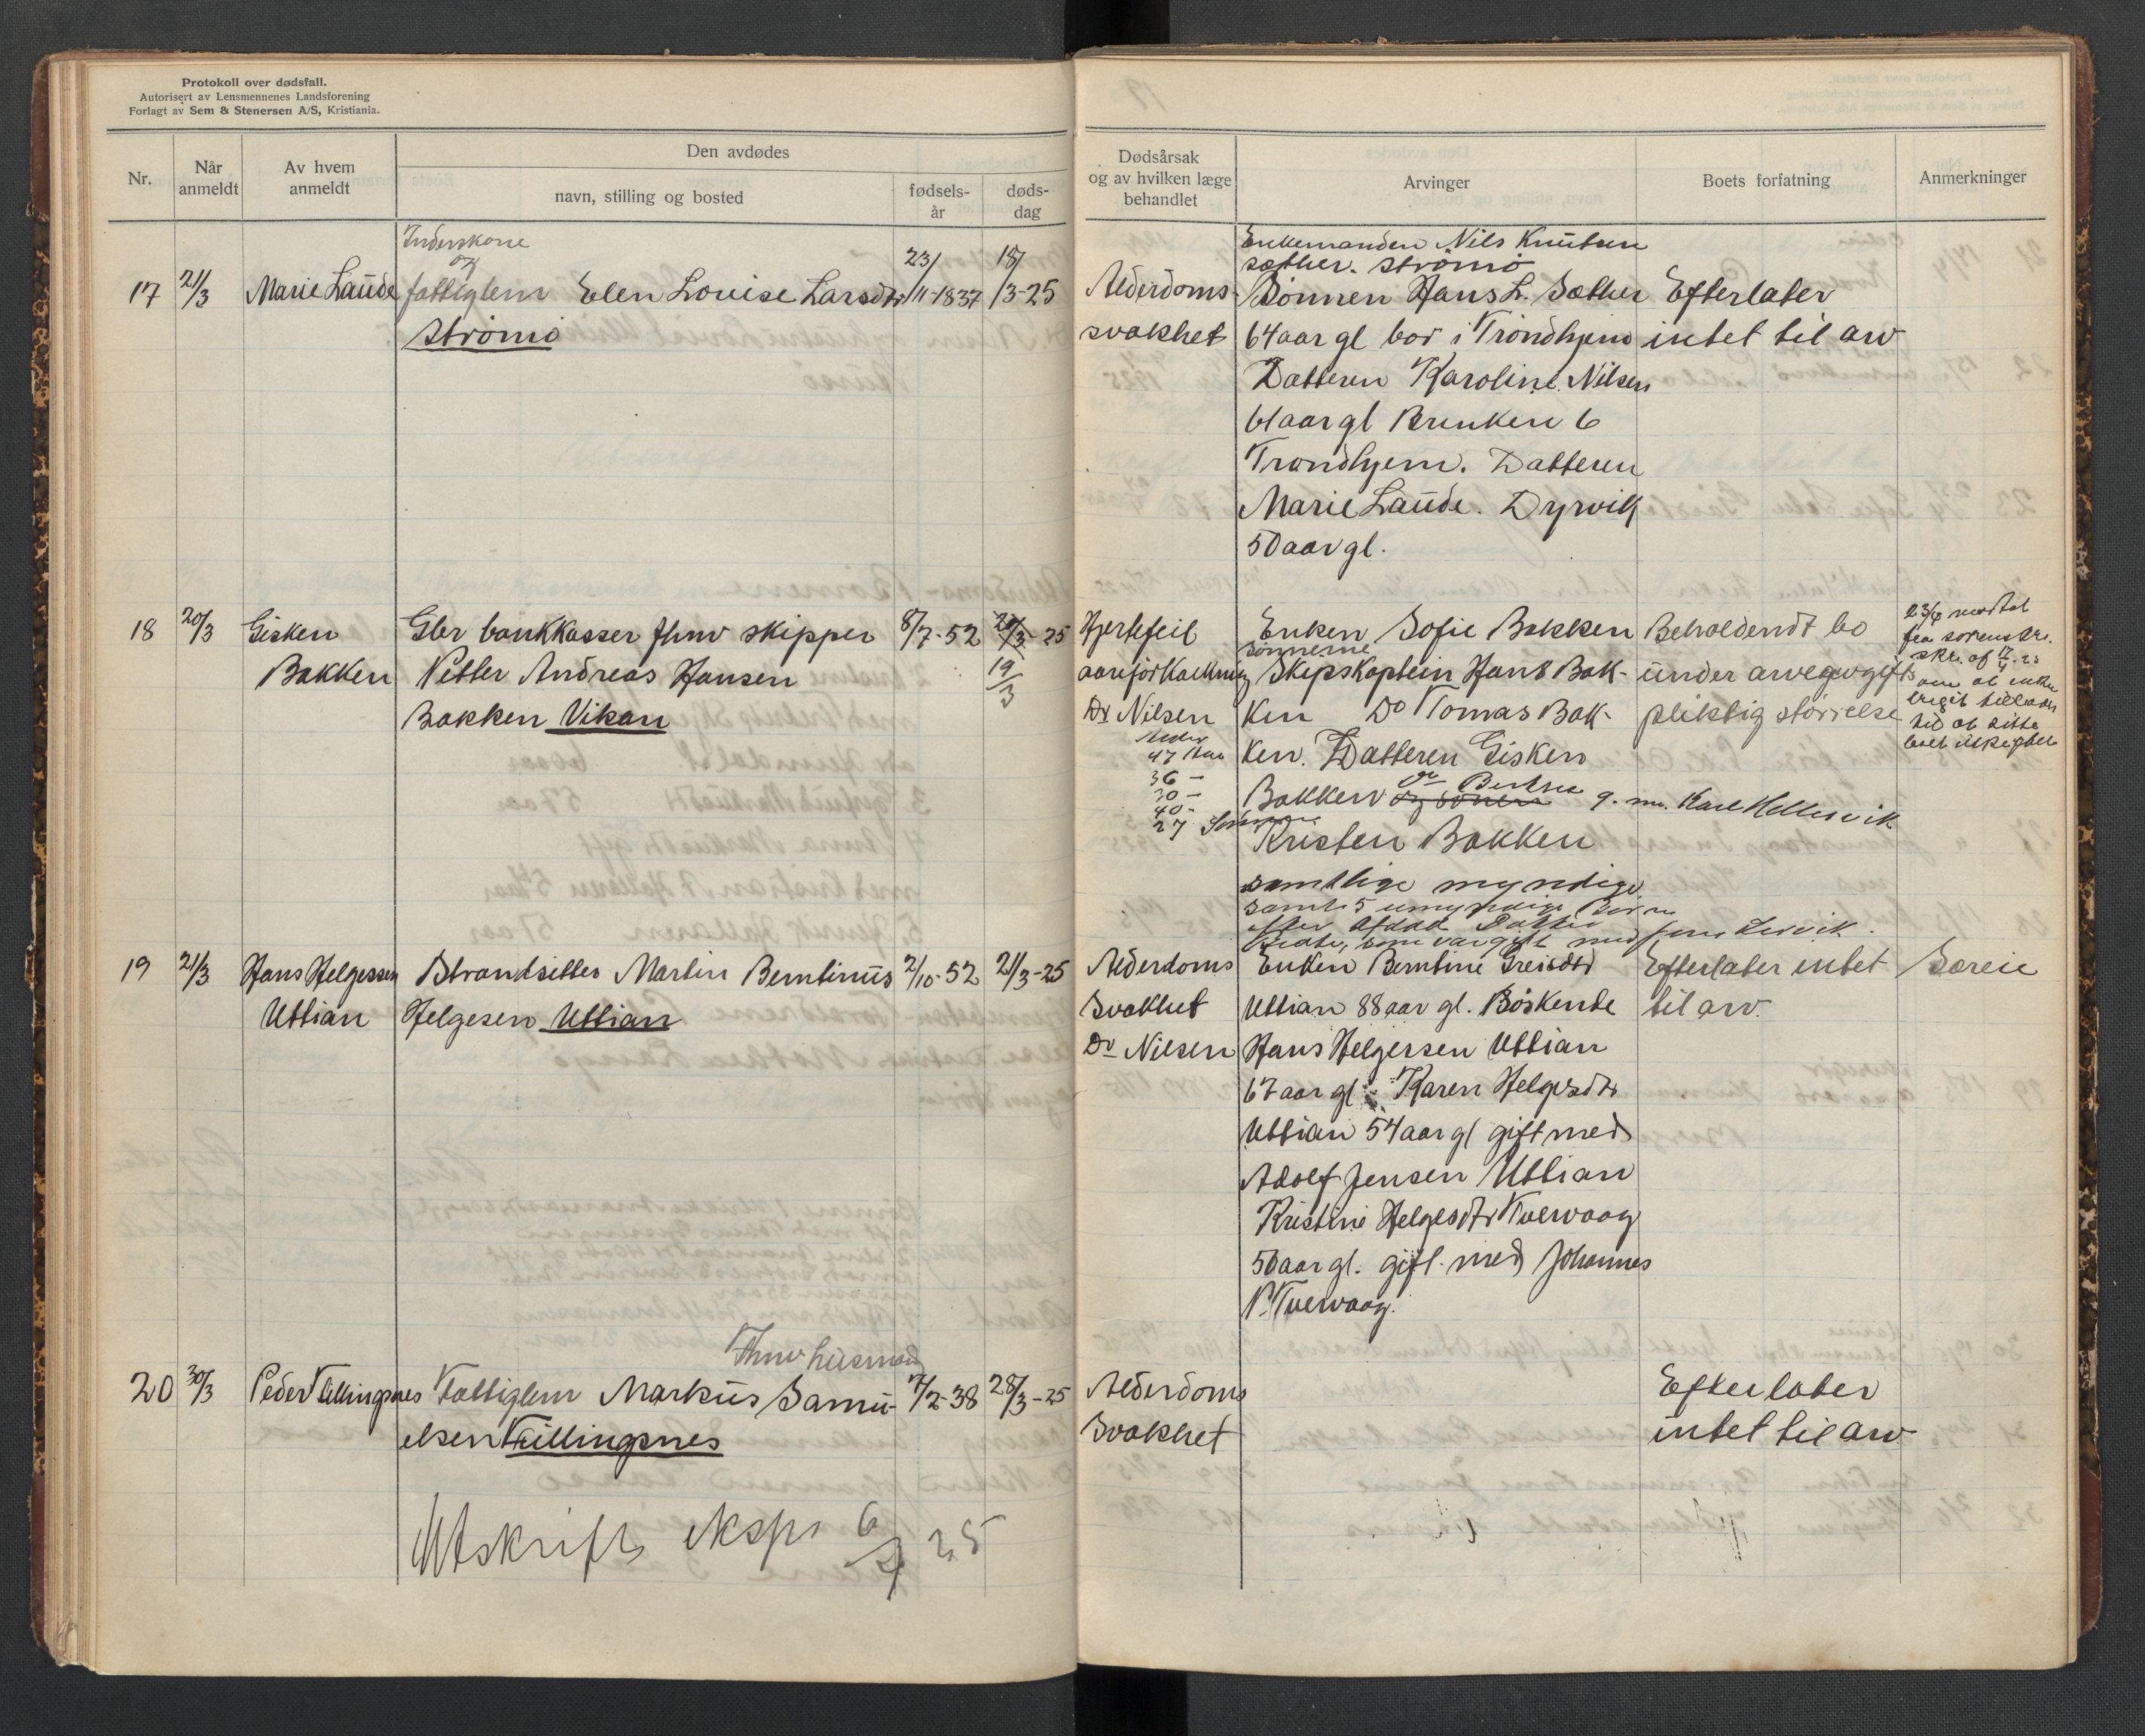 Protokoll over dødsfall.
Autorisert av Lensmennenes Landsforening
Forlagt av Sem & Stenersen A/S, Kristiania.
Nr.
Når anmeldt
Av hvem anmeldt
Den avdødes
navn, stilling og bosted
fødsels-år
døds-dag
Dødsårsak og av hvilken læge behandlet
Arvinger
Boets forfatning
Anmerkninger
17
21/3
Marie Laude
og
fattiglem Elen Louise Larsdtr
Strømø
23/11-1837
18/3-25
Alderdoms-
svakhet
Enkemanden Nils Knutsen
Sæther. Strømø
Sønnen Hans L. Sæther
64 aar gl bor i Trondhjem
Datteren Karoline Nilsen
61 aar gl Brinken 6
Trondhjem. Datteren
Marie Laude. Dyrvik
50 aar gl.
Efterlater
intet til arv
18
20/3
Gisken
Bakken
Gbr bankkasser fhnv skipper
Petter Andreas Hansen
Bakken Vikan
8/7-52
20/3-25
19/3
Hjertefeil
aareforkalkning
Dr Nilsen
47 Aar
36 -
30 -
40 -
27
Enken Sofie Bakken
sønnerne
Skipskaptein Hans Bak-
ken Do Tomas Bak-
ken. Datteren Gisken
Bakken og g. m. Karl Hellesvik
Kristen Bakken
samtlige myndige
samt 5 umyndige Børn
efter afdød Datter
Beate, som var gift med Jens
Beholdendt bo
under arveavgifts
pliktig størrelse
23/4 mottat
fra sorenskr.
skr. af 17/4-25
om at enken
til at sitte
19
21/3
Hans Helgessen
Uttian
Strandsitter Martin Berntinus
Helgesen Uttian
2/10-52
21/3-25
Alderdoms
Svakhet
Dr Nilsen
Enken Berntine Greisdtr
Uttian 88 aar gl. Søskende
Hans Helgersen Uttian
67 aar gl. Karen Helgesdtr
Uttian 54 aar gl gift med
Adolf Jensen Uttian
Kristine Helgesdtr Tuervaag
50 aar gl. gift med Johannes
P. Tuervaag.
Efterlater intet
til arv.
20
30/3
Peder Fillingsnes
Fhnv husmand
Fattiglem Markus Samu-
elsen Fillingsnes
7/2-38
28/3-25
Alderdoms
Svakhet
Efterlater
intet til arv
Utskrift eksp. 6/4 25